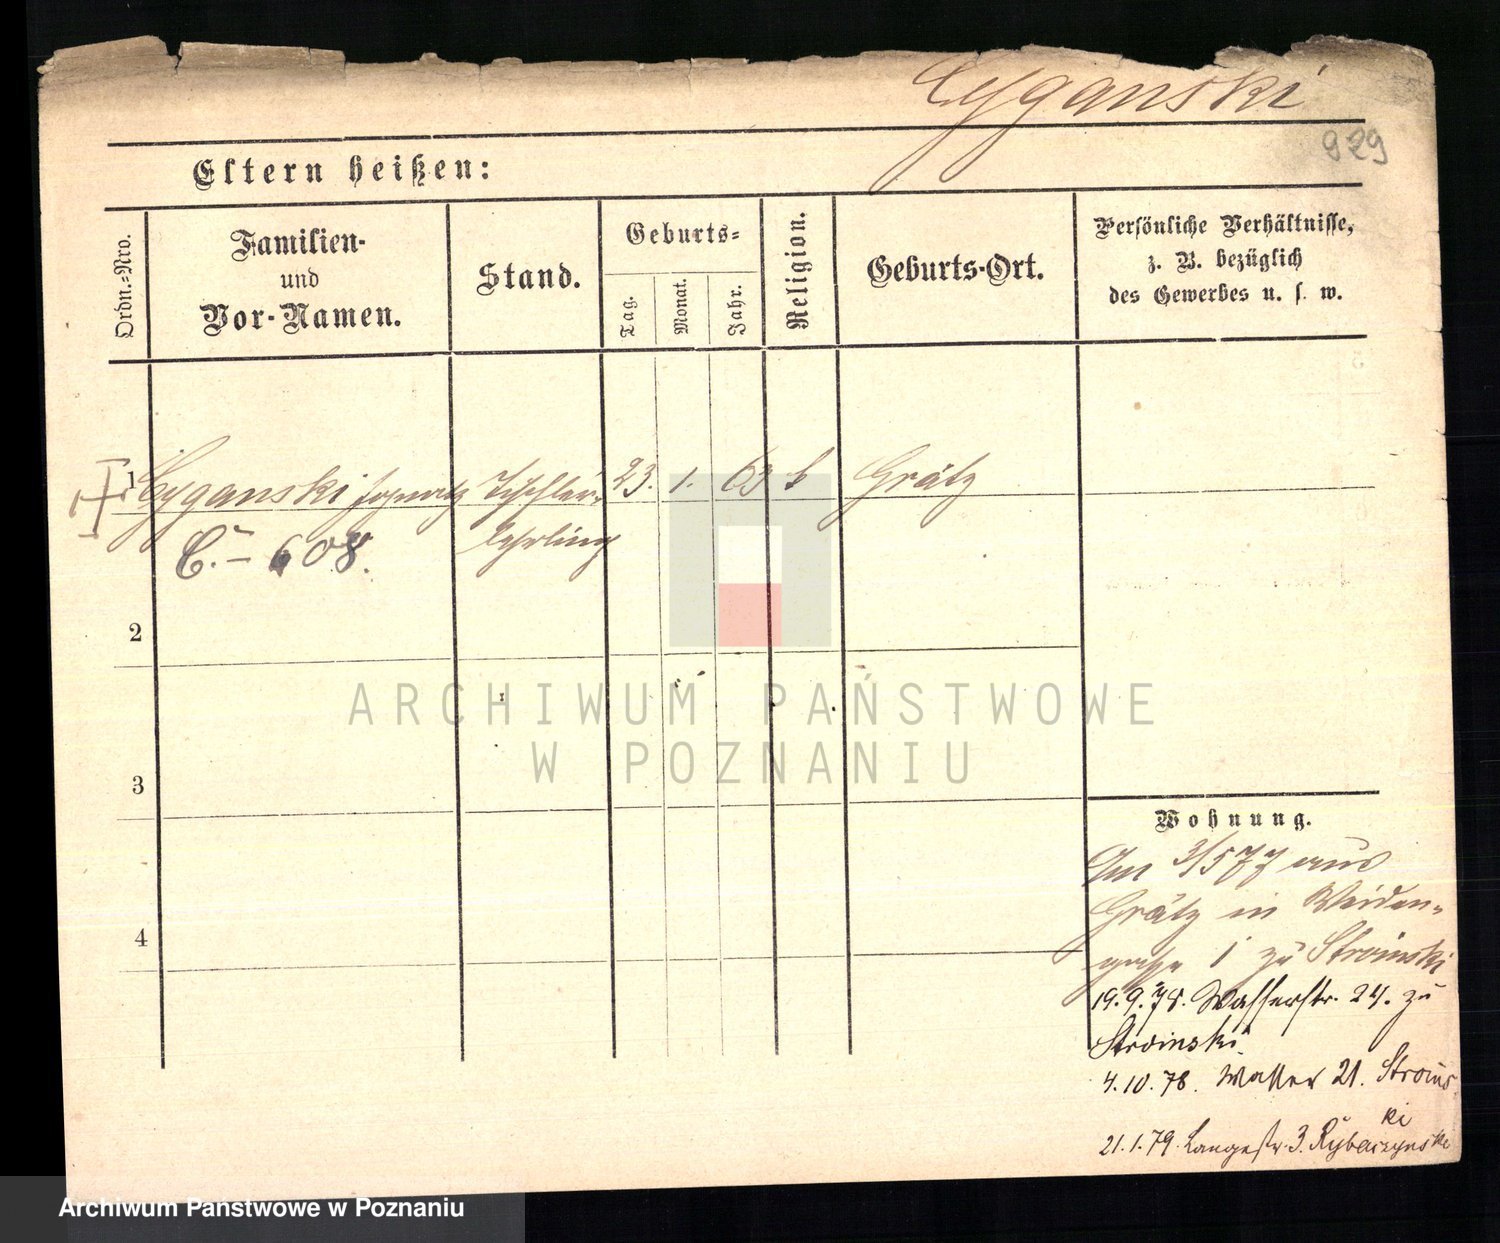 Cyganski
929
Eltern heißen:
Ordn.-Nro.
Familien-
und
Vor-Namen.
Stand.
Geburts-
Tag.
Monat.
Jahr.
Religion.
Geburts-Ort.
Persönliche Verhältnisse,
z. B. bezüglich
des Gewerbes u. s. w.
1 Cyganski Ignatz Tischler- 23. 1. 63 k Grätz
lehrling
C. - 608.
2
3
4
Wohnung.
Am 3/5 77 aus
Grätz in Weiden-
gasse 1 zu Stroinski
19.9.78. Wasserstr. 24. zu
Stroinski.
4.10.78. Wasser 21. Stroins
ki
21.1.79. Langestr. 3. Rybaczynski
ARCHIWUM PAŃSTWOWE
W POZNANIU
Archiwum Państwowe w Poznaniu